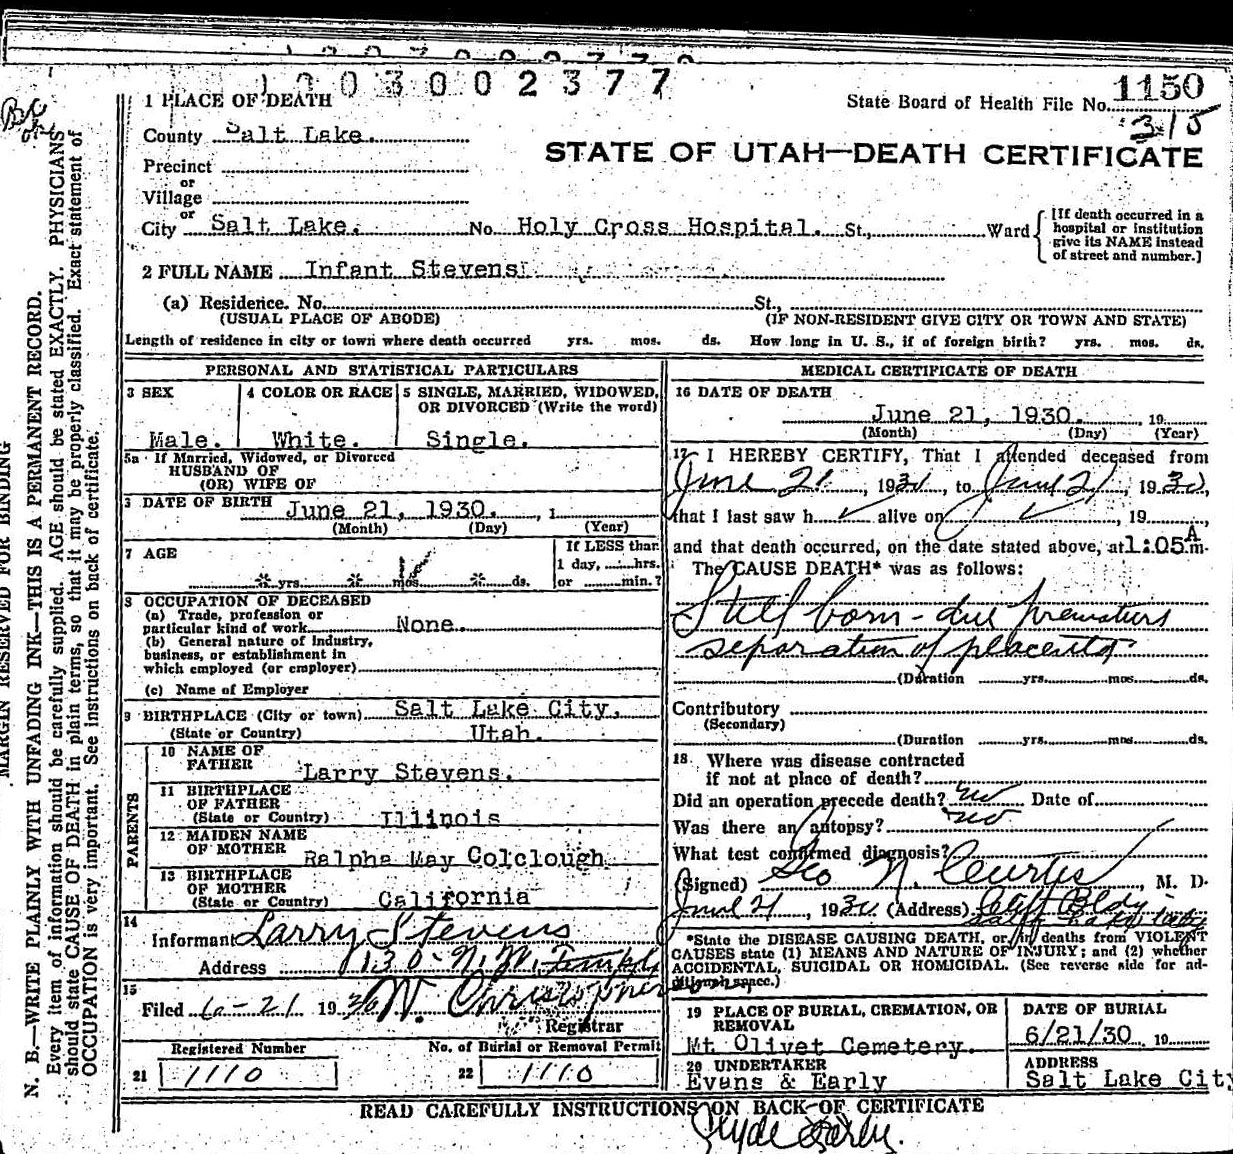 1003002377
1150
State Board of Health File No.
315
1 PLACE OF DEATH
County Salt Lake.
STATE OF UTAH—DEATH CERTIFICATE
Precinct
or
Village
or
City Salt Lake. No. Holy Cross Hospital. St., Ward
[If death occurred in a
hospital or institution
give its NAME instead
of street and number.]
2 FULL NAME Infant Stevens
(a) Residence. No. St.,
(USUAL PLACE OF ABODE) (IF NON-RESIDENT GIVE CITY OR TOWN AND STATE)
Length of residence in city or town where death occurred yrs. mos. ds. How long in U. S., if of foreign birth? yrs. mos. ds.
PERSONAL AND STATISTICAL PARTICULARS
3 SEX
Male.
4 COLOR OR RACE
White.
5 SINGLE, MARRIED, WIDOWED,
OR DIVORCED (Write the word)
Single.
5a If Married, Widowed, or Divorced
HUSBAND OF
(OR) WIFE OF
DATE OF BIRTH June 21, 1930. , 1
(Month) (Day) (Year)
7 AGE
* yrs. * mos. * ds.
If LESS than
1 day, hrs.
or min.?
8 OCCUPATION OF DECEASED
(a) Trade, profession or
particular kind of work None.
(b) General nature of industry,
business, or establishment in
which employed (or employer)
(c) Name of Employer
9 BIRTHPLACE (City or town) Salt Lake City,
(State or Country) Utah.
PARENTS
10 NAME OF
FATHER Larry Stevens.
11 BIRTHPLACE
OF FATHER
(State or Country) Illinois
12 MAIDEN NAME
OF MOTHER Ralpha May Colclough
13 BIRTHPLACE
OF MOTHER
(State or Country) California
14
Informant Larry Stevens
Address 130 - N. W. Temple
15
Filed 6-21 1930 W. Christopherson
Registrar
Registered Number
21 1110
No. of Burial or Removal Permit
22 1110
MEDICAL CERTIFICATE OF DEATH
16 DATE OF DEATH
June 21, 1930. 19
(Month) (Day) (Year)
17 I HEREBY CERTIFY, That I attended deceased from
June 21, 1930, to June 21, 1930,
that I last saw h alive on , 19 ,
and that death occurred, on the date stated above, at 1:05 A m.
The CAUSE DEATH* was as follows:
Still born - due premature
separation of placenta
(Duration yrs. mos. ds.
Contributory
(Secondary)
(Duration yrs. mos. ds.
18 Where was disease contracted
if not at place of death?
Did an operation precede death? no Date of
Was there an autopsy? no
What test confirmed diagnosis?
(Signed) Geo N. Curtis, M. D.
June 21, 1930 (Address) Clift Bldg
Salt Lake City
*State the DISEASE CAUSING DEATH, or, in deaths from VIOLENT
CAUSES state (1) MEANS AND NATURE OF INJURY; and (2) whether
ACCIDENTAL, SUICIDAL OR HOMICIDAL. (See reverse side for ad-
ditional space.)
19 PLACE OF BURIAL, CREMATION, OR
REMOVAL
Mt Olivet Cemetery.
DATE OF BURIAL
6/21/30. 19
20 UNDERTAKER
Evans & Early
ADDRESS
Salt Lake City
READ CAREFULLY INSTRUCTIONS ON BACK OF CERTIFICATE
Clyde Early.
MARGIN RESERVED FOR BINDING
N. B.—WRITE PLAINLY WITH UNFADING INK—THIS IS A PERMANENT RECORD.
Every item of information should be carefully supplied. AGE should be stated EXACTLY. PHYSICIANS
should state CAUSE OF DEATH in plain terms, so that it may be properly classified. Exact statement of
OCCUPATION is very important. See instructions on back of certificate.